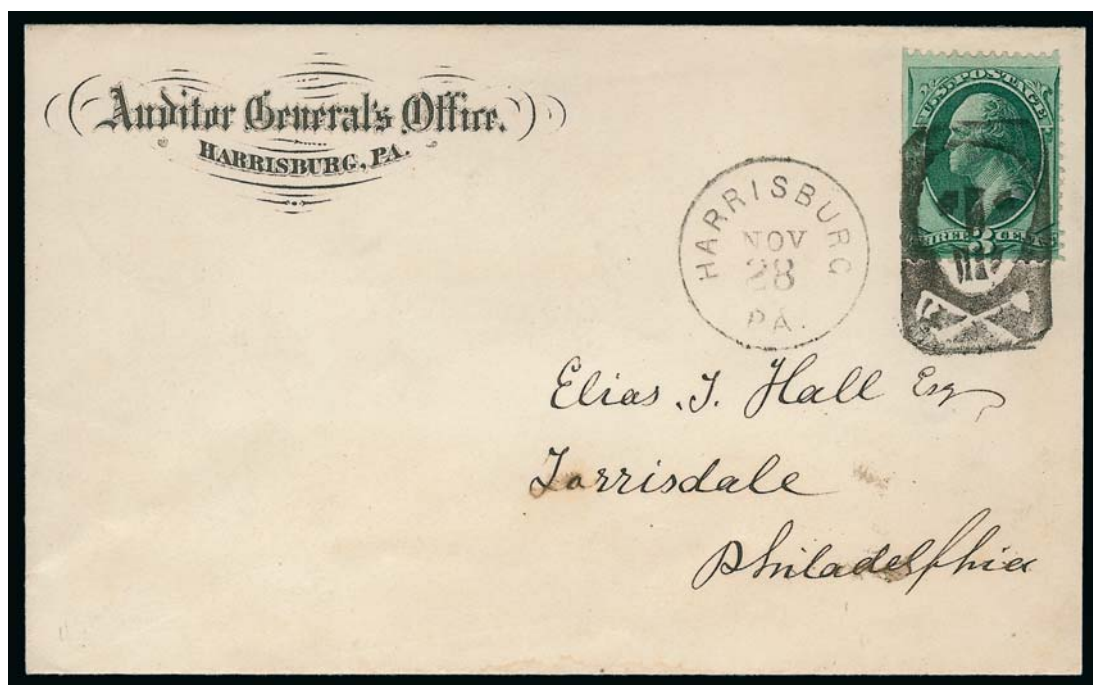 Auditor General's Office.
HARRISBURG, PA.
U.S. POSTAGE
THREE 3 CENTS
HARRISBURG
NOV
28
PA.
Elias. T. Hall Esq
Torrisdale
Philadelphia